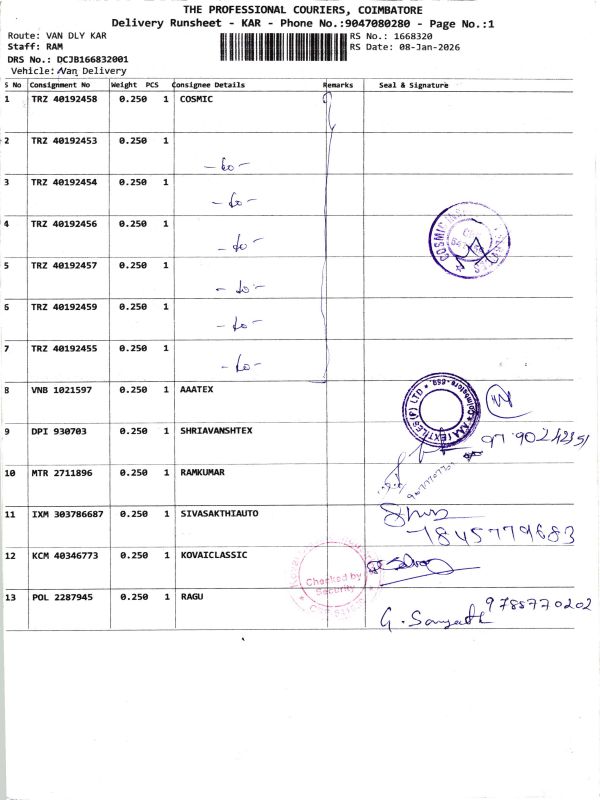 THE PROFESSIONAL COURIERS, COIMBATORE
Delivery Runsheet - KAR - Phone No.:9047080280 - Page No.:1
Route: VAN DLY KAR
RS No.: 1668320
Staff: RAM
RS Date: 08-Jan-2026
DRS No.: DCJB166832001
Vehicle: Van Delivery
S No Consignment No Weight PCS Consignee Details Remarks Seal & Signature
1 TRZ 40192458 0.250 1 COSMIC
2 TRZ 40192453 0.250 1 -do-
3 TRZ 40192454 0.250 1 -do-
4 TRZ 40192456 0.250 1 -do-
COSMIC
5 TRZ 40192457 0.250 1 -do-
6 TRZ 40192459 0.250 1 -do-
7 TRZ 40192455 0.250 1 -do-
8 VNB 1021597 0.250 1 AAATEX
AAA TEXTILES (P) LTD * Coimbatore-659. *
9 DPI 930703 0.250 1 SHRIAVANSHTEX
10 MTR 2711896 0.250 1 RAMKUMAR
11 IXM 303786687 0.250 1 SIVASAKTHIAUTO
7845779683
12 KCM 40346773 0.250 1 KOVAICLASSIC
Checked by
Security
13 POL 2287945 0.250 1 RAGU
9788770202